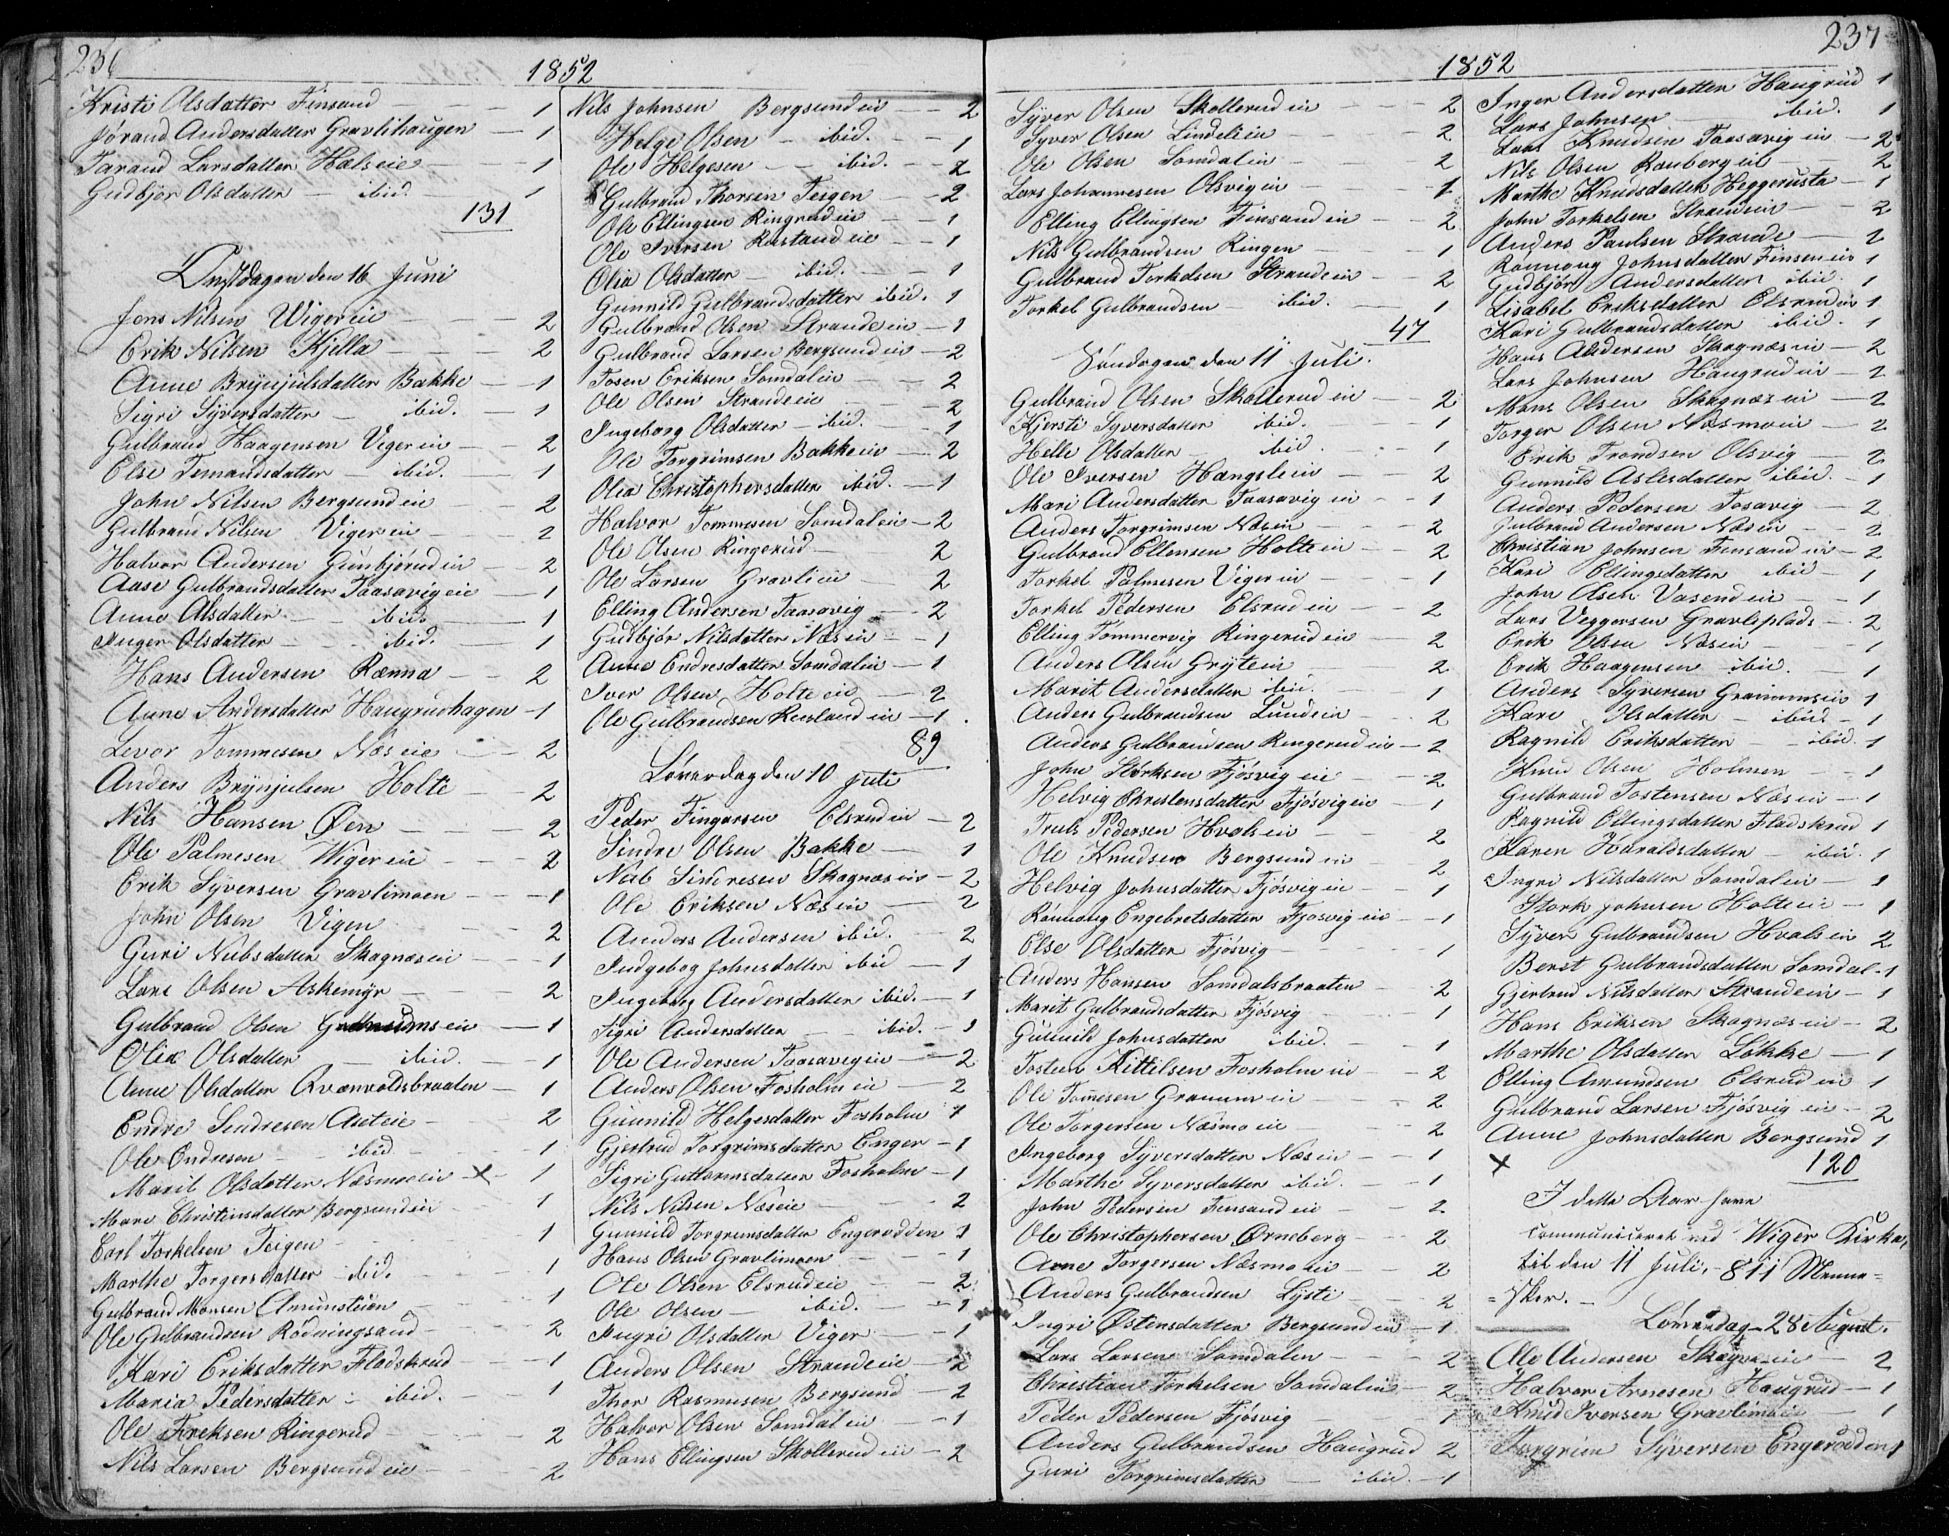 236
1852
Kristi Olsdatter Finsand — 1
Jørand Andersdatter Gravlihaugen — 1
Tarand Larsdatter Hælseie — 1
Gudbjør Olsdatter ibid. 1
131
Onsdagen den 16 Juni
Jens Nilsen Wigereie — 2
Erik Nilsen Kjella — 2
Anne Brynjulsdatter Bakke — 1
Sigri Syversdatter — ibid. — 1
Gulbrand Haagensen Vigereie — 2
Else Temandsdatter — ibid. 1
John Nilsen Bergsundeie — 2
Gulbrand Nilsen Vigereie — 2
Halvor Andersen Gunbjørudein — 2
Aase Gulbrandsdatter Taasavigeie — 1
Anne Olsdatter — ibid. — 1
Inger Olsdatter — ibid. — 1
Hans Andersen Rænna — 2
Anne Andersdatter Haugrudhagen — 1
Levor Tommesen Næseie — 2
Anders Brynjulsen Holte — 2
Nils Hansen Øen — 2
Ole Palmesen Wigereie — 2
Erik Syversen Gravlimoen — 1
John Olsen Vigen — 2
Guri Nubsdatter Skagnæseie — 1
Lars Olsen Askemyr — 2
Gulbrand Olsen — 1
Olia Olsdatter — ibid. — 1
Anne Olsdatter Qvænvoldsbraaten — 1
Endre Sindresen Auteie — 2
Ole Endresen — ibid. — 1
Marit Olsdatter Næsmoeie — x — 1
Mari Christensdatter Bergsundeie — 1
Carl Torkelsen Teigen — 1
Marthe Torgersdatter — ibid. 1
Gulbrand Monsen Amunstuen — 1
Ole Gulbrandsen Rødningsand — 2
Kari Eriksdatter Fladskrud — 1
Maria Pedersdatter — ibid. — 1
Ole Eriksen Ringerud — 2
Nils Larsen Bergsundeie — 2
Nils Johnsen Bergsundeie — 2
Helge Olsen — ibid. — 1
Ole Helgesen — ibid. — 2
Gulbrand Thorsen Teigen — 2
Ole Ellingsen Ringrudeie — 1
Ole Iversen Rustandeie — 1
Olia Olsdatter — ibid. — 1
Gunnild Gulbrandsdatter ibid. 1
Gulbrand Olsen Strandeein — 1
Gulbrand Larsen Bergsundein — 2
Tosen Eriksen Somdalein — 2
Ole Olsen Strandeeie — 2
Ingeborg Olsdatter — ibid. — 1
Ole Torgrimsen Bakkein — 2
Olia Christophersdatter ibid. — 1
Halvor Tommesen Somdalein — 2
Ole Olsen Ringerud — 2
Ole Larsen Gravliein — 2
Elling Andersen Taasavig — 2
Gudbjør Nilsdatter Næsein — 1
Anne Endresdatter Somdalein — 1
Iver Olsen Holteein — 2
Ole Gulbrandsen Ruslandein — 1.
89
Løverdag den 10 Juli
Peder Fingarsen Elsrudein — 2
Sindre Olsen Bakke — 1
Nub Sindresen Skagnæsein — 2
Ole Eriksen Næsein — 2
Anders Andersen ibid. — 2
Indgebog Johnsdatter ibid — 1
Ingeborg Andersdatter ibid. — 1
Sigri Andersdatter ibid. — 1
Ole Andersen Taasavigein — 2
Anders Olsen Fosholmein — 2
Gunnild Helgesdatter Fosholm 1
Gjertrud Torgrimsdatter Enger — 1
Sigri Guttormsdatter Fosholm — 1
Nils Nilsen Næseie — 2
Gunnild Torgrimsdatter Engerodden 1
Hans Olsen Gravlimoen — 1
Ole Olsen Elsrudeie — 2
Ole Olsen — ibid. — 1
Ingri Olsdatter Viger — 1
Anders Olsen Strandeeie — 2
Thor Rasmusen Bergsund — 2
Halvor Olsen Somdalein — 1
Hans Ellingsen Skollerudein — 2
237
1852
Syver Olsen Skollerudein — 2
Syver Olsen Lindeliein — 2
Ole Olsen Somdalein — 2
Lars Johannesen Olsvigein — 1
Elling Ellingsen Finsandein — 2
Nils Gulbrandsen Ringen — 1
Gulbrand Torkelsen Strandein — 2
Torkel Gulbrandsen — ibid. — 1
47
Søndagen den 11 Juli.
Gulbrand Olsen Skollerudein — 2
Kjersti Syversdatter ibid. — 1
Helle Olsdatter ibid. — 1
Ole Iversen Hængslein — 2
Mari Andersdatter Taasavigein — 1
Anders Torgrimsen Næsein — 2
Gulbrand Ellensen Holteein — 2
Torkel Palmesen Vigerein — 1
Torkel Pedersen Elsrudein — 2
Elling Tømmervig Ringerudein — 2
Anders Olsen Grytein — 2
Marit Andersdatter ibid. — 1
Anders Gulbrandsen Lundein — 2
Anders Gulbrandsen Ringerudein — 2
John Størksen Fjøsvigein — 2
Helvig Christensdatter Fjøsvigein — 1
Truls Pedersen Hvalsein — 2
Ole Knudsen Bergsundein — 2
Helvig Johnsdatter Fjøsvigein — 1
Rønnoug Engebretsdatter Fjøsvigein — 1
Else Olsdatter Fjøsvig — 1
Anders Hansen Somdalsbraaten — 2
Marit Gulbrandsdatter Fjøsvig — 1
Gunnild Johnsdatter ibid. — 1
Tosten Kittilsen Fosholmein — 2
Ole Tommesen Granumein — 2
Ole Torgersen Næsmoein — 2
Ingeborg Syversdatter Næsein — 1
Marthe Syversdatter ibid. — 1
John Pedersen Finsandein — 2
Ole Christophersen Ørneberg — 2
Arne Torgersen Næsmoein — 2
Anders Gulbrandsen Lyste — 2
Ingri Østensdatter Bergsundein — 1
Lars Larsen Somdalen — 2
Christian Torkelsen Somdalein — 2
Peder Pedersen Fjøsvig — 1
Anders Gulbrandsen Haugrud 2
Guri Torgrimsdatter — ibid. — 1
Inger Andersdatter Haugrud 1
Lars Johnsen — ibid. 1
Lars Knudsen Taasavigein — 2
Nils Olsen Rauberget — 2
Marthe Knudsdatter Heggerusta — 1
John Torkelsen Strandein — 2
Anders Paulsen Strande — 2
Rønnoug Johnsdatter Finsanein 1
Gudbjør Andersdatter ibid. 1
Lisabet Eriksdatter Elsrudein 1
Kari Gulbrandsdatter ibid. 1
Hans Andersen Skagnæsein — 2
Lars Johnsen Haugrudein — 2
Mons Olsen Skagnæsein — 2
Torger Olsen Næsmoein — 2
Erik Trondsen Olsvig — 2
Gunnild Aslesdatter ibid. — 1
Anders Pedersen Tosavig — 2
Gulbrand Andersen Næsein — 2
Christian Johnsen Finsandein — 2
Kari Ellingsdatter ibid — 1
John Olsen Vasendein — 1
Lars Veggersen Gravliplads — 2
Erik Olsen Næsein — 1
Erik Haagensen ibid. — 1
Anders Syversen Granumsein 1
Kari Olsdatter — ibid. — 1
Ragnild Eriksdatter — ibid. 1
Knud Olsen Holmen — 1
Gulbrand Tostensen Næsein — 1
Ragnild Ellingsdatter Fladskrud 1
Karen Haraldsdatter — ibid. 1
Ingri Nilsdatter Somdalein — 1
Størk Johnsen Holtein — 1
Syver Gulbrandsen Hvalsein 2
Berit Gulbrandsdatter Somdal — 1
Gjertrud Nilsdatter Strandein — 1
Hans Eriksen Skagnæsein — 2
Marthe Olsdatter Løkke — 1
Elling Amundsen Elsrudein 1
Gulbrand Larsen Fjøsvigein — 2
Anne Johnsdatter Bergsund 1
x 120
I dette Aar have
communiceret ved Wiger Kirke,
til den 11 Juli, — 811 Menne=
=sker. —
Løverdag 28 August.
Ole Andersen Skagnæsein — 2
Halvor Arnesen Haugrud — 1
Knud Iversen Gravlimoen — 1
Torgrim Syversen Engerodden 1